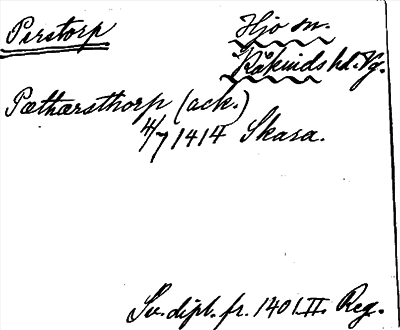 Perstorp
Hjo sn.
Kåkinds hd. Vg.
Pæthærsthorp (ack.)
4/7 1414 Skara.
Sv. dipl. fr. 1401. II. Reg.